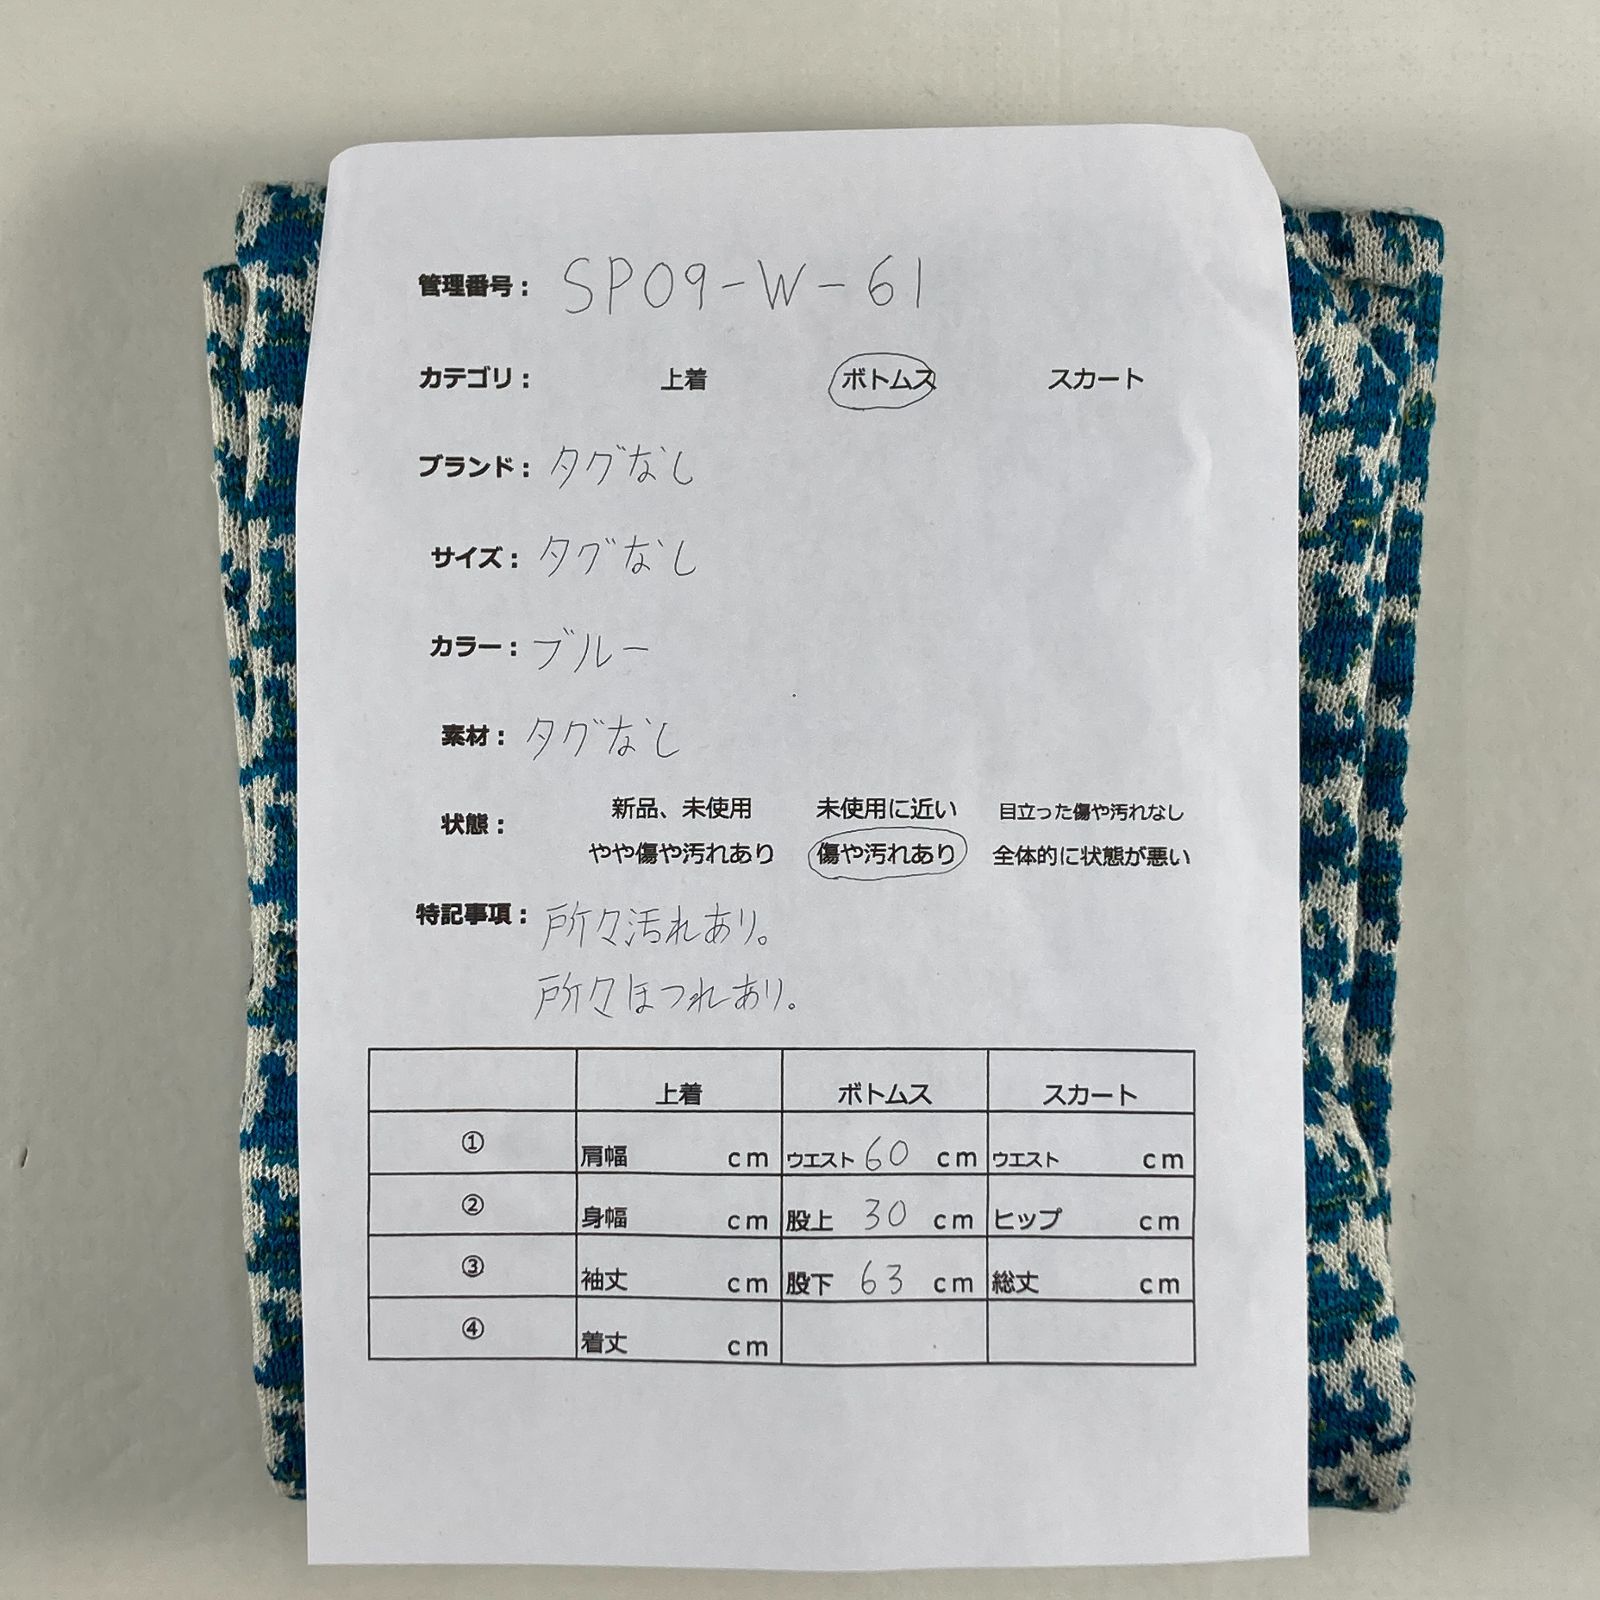 管理番号： SP09-W-61
カテゴリ： 上着 ボトムス スカート
ブランド： タグなし
サイズ： タグなし
カラー： ブルー
素材： タグなし
状態： 新品、未使用 未使用に近い 目立った傷や汚れなし
やや傷や汚れあり 傷や汚れあり 全体的に状態が悪い
特記事項： 所々汚れあり。
所々ほつれあり。
上着 ボトムス スカート
① 肩幅 cm ウエスト 60 cm ウエスト cm
② 身幅 cm 股上 30 cm ヒップ cm
③ 袖丈 cm 股下 63 cm 総丈 cm
④ 着丈 cm